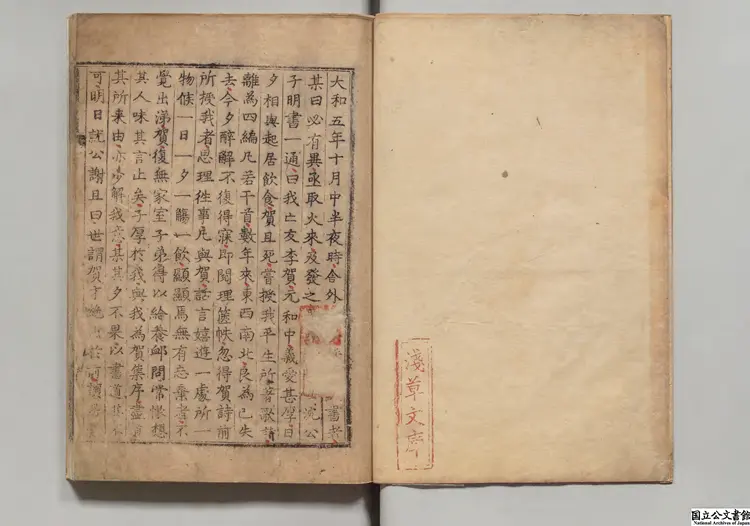 淺草文庫
大和五年十月中半夜時舍外書者
某曰必有異亟取火來及發之沈公
子明書一通曰我亡友李賀元和中義愛甚厚日
夕相與起居飲食賀且死嘗授我平生所著歌詩
離為四編凡若干首數年來東西南北良為已失
去今夕醉解不復得寐即閱理篋帙忽得賀詩前
所授我者思理往事凡與賀話言嬉遊一處所一
物候一日一夕一觴一飲顯顯焉無有忘棄者不
覺出涕賀復無家室子弟得以給養卹問常恨想
其人味其言止矣子厚於我與我為賀集序盡道
其所來由亦少解我意某其夕不果以書道其不
可明日就公謝且曰世謂賀才絶出於
国立公文書館
National Archives of Japan